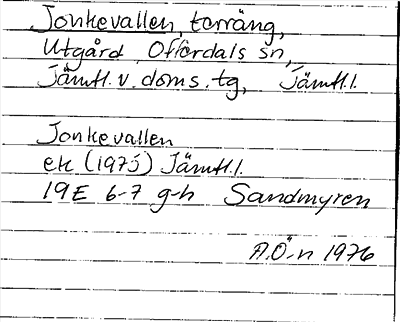 Jonkevallen, terräng,
Utgård, Offerdals sn,
Jämtl. v. doms. tg, Jämtl. l.
Jonkevallen
ek (1975) Jämtl. l.
19E 6-7 g-h Sandmyren
A.Ö-n 1976